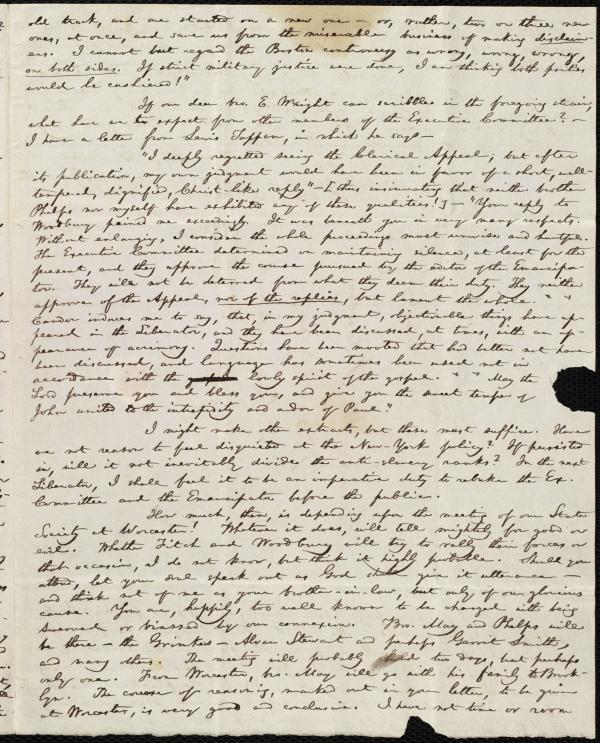 old track, and are started on a new one — or, rather, two or three new
ones, at once, and save us from the miserable business of making disclaim-
ers. I cannot but regard the Boston controversy as wrong, wrong, wrong,
on both sides. If strict military justice were done, I am thinking both parties
would be cashiered!"
If our dear bro. E. Wright can scribble in the foregoing strain,
what have we to expect from other members of the Executive Committee? —
I have a letter from Lewis Tappan, in which he says —
"I deeply regretted seeing the Clerical Appeal; but after
its publication, my own judgment would have been in favor of a short, well-
tempered, dignified, Christ-like reply" — [thus insinuating that neither brother
Phelps nor myself have exhibited any of those qualities!] — "Your reply to
Woodbury pained me exceedingly. It was beneath you in very many respects.
Without enlarging, I consider the whole proceedings most unwise and hurtful.
The Executive Committee determined on maintaining silence, at least for the
present, and they approve the course pursued by the editor of the Emancipa-
tor. They will not be deterred from what they deem their duty. They neither
approve of the Appeal, nor of the replies, but lament the whole. * *
Candor induces me to say, that, in my judgment, objectionable things have ap-
peared in the Liberator, and they have been discussed, at times, with an ap-
pearance of acrimony. Questions have been mooted that had better not have
been discussed, and language has sometimes been used not in
accordance with the lowly spirit of the gospel. * * May the
Lord preserve you and bless you, and give you the sweet temper of
John united to the intrepidity and ardor of Paul."
I might make other extracts, but these must suffice. Have
we not reason to feel disquieted at the New-York policy? If persisted
in, will it not inevitably divide the anti-slavery ranks? In the next
Liberator, I shall feel it to be an imperative duty to rebuke the Ex.
Committee and the Emancipator before the public.
How much, then, is depending upon the meeting of our State
Society at Worcester! Whatever it does, will tell mightily for good or
evil. Whether Fitch and Woodbury will try to rally their forces on
that occasion, I do not know, but think it highly probable. Should you
attend, let your soul speak out as God shall give it utterance —
and think not of me as your brother-in-law, but only of our glorious
cause. You are, happily, too well known to be charged with being
swerved or biassed by our connexion. Bro. May and Phelps will
be there — the Grimkes — Alvan Stewart and perhaps Gerrit Smith,
and many others. The meeting will probably hold two days, but perhaps
only one. From Worcester, bro. May will go with his family to Brook-
lyn. The course of reasoning, marked out in your letter, to be given
at Worcester, is very good and conclusive. I have not time or room